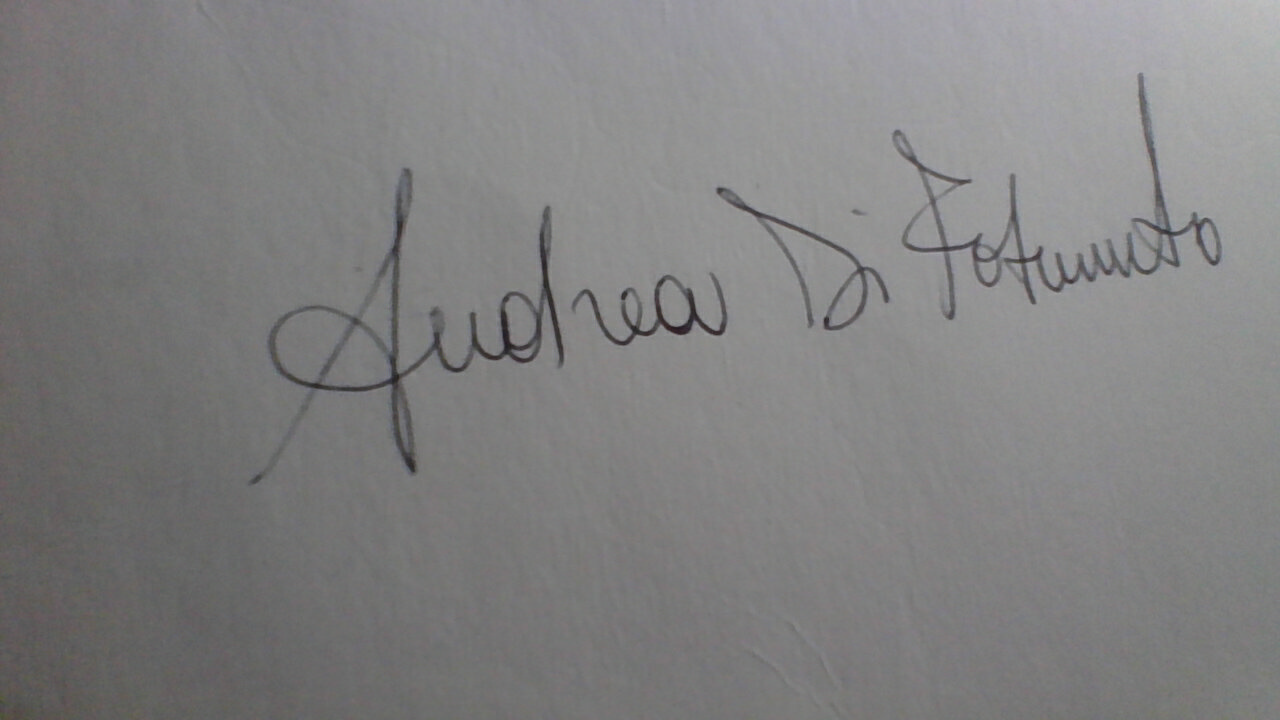 Andrea Di Fortunato